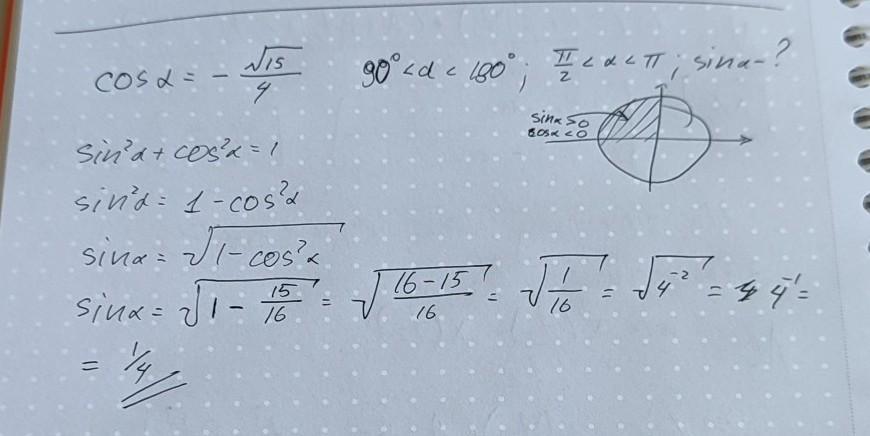 cos α = - √15/4   90° < α < 180° ; π/2 < α < π ; sin α - ?
sin α > 0
cos α < 0
sin²α + cos²α = 1
sin²α = 1 - cos²α
sin α = √(1 - cos²α)
sin α = √(1 - 15/16) = √((16 - 15)/16) = √(1/16) = √(4⁻²) = 4⁻¹ =
= 1/4